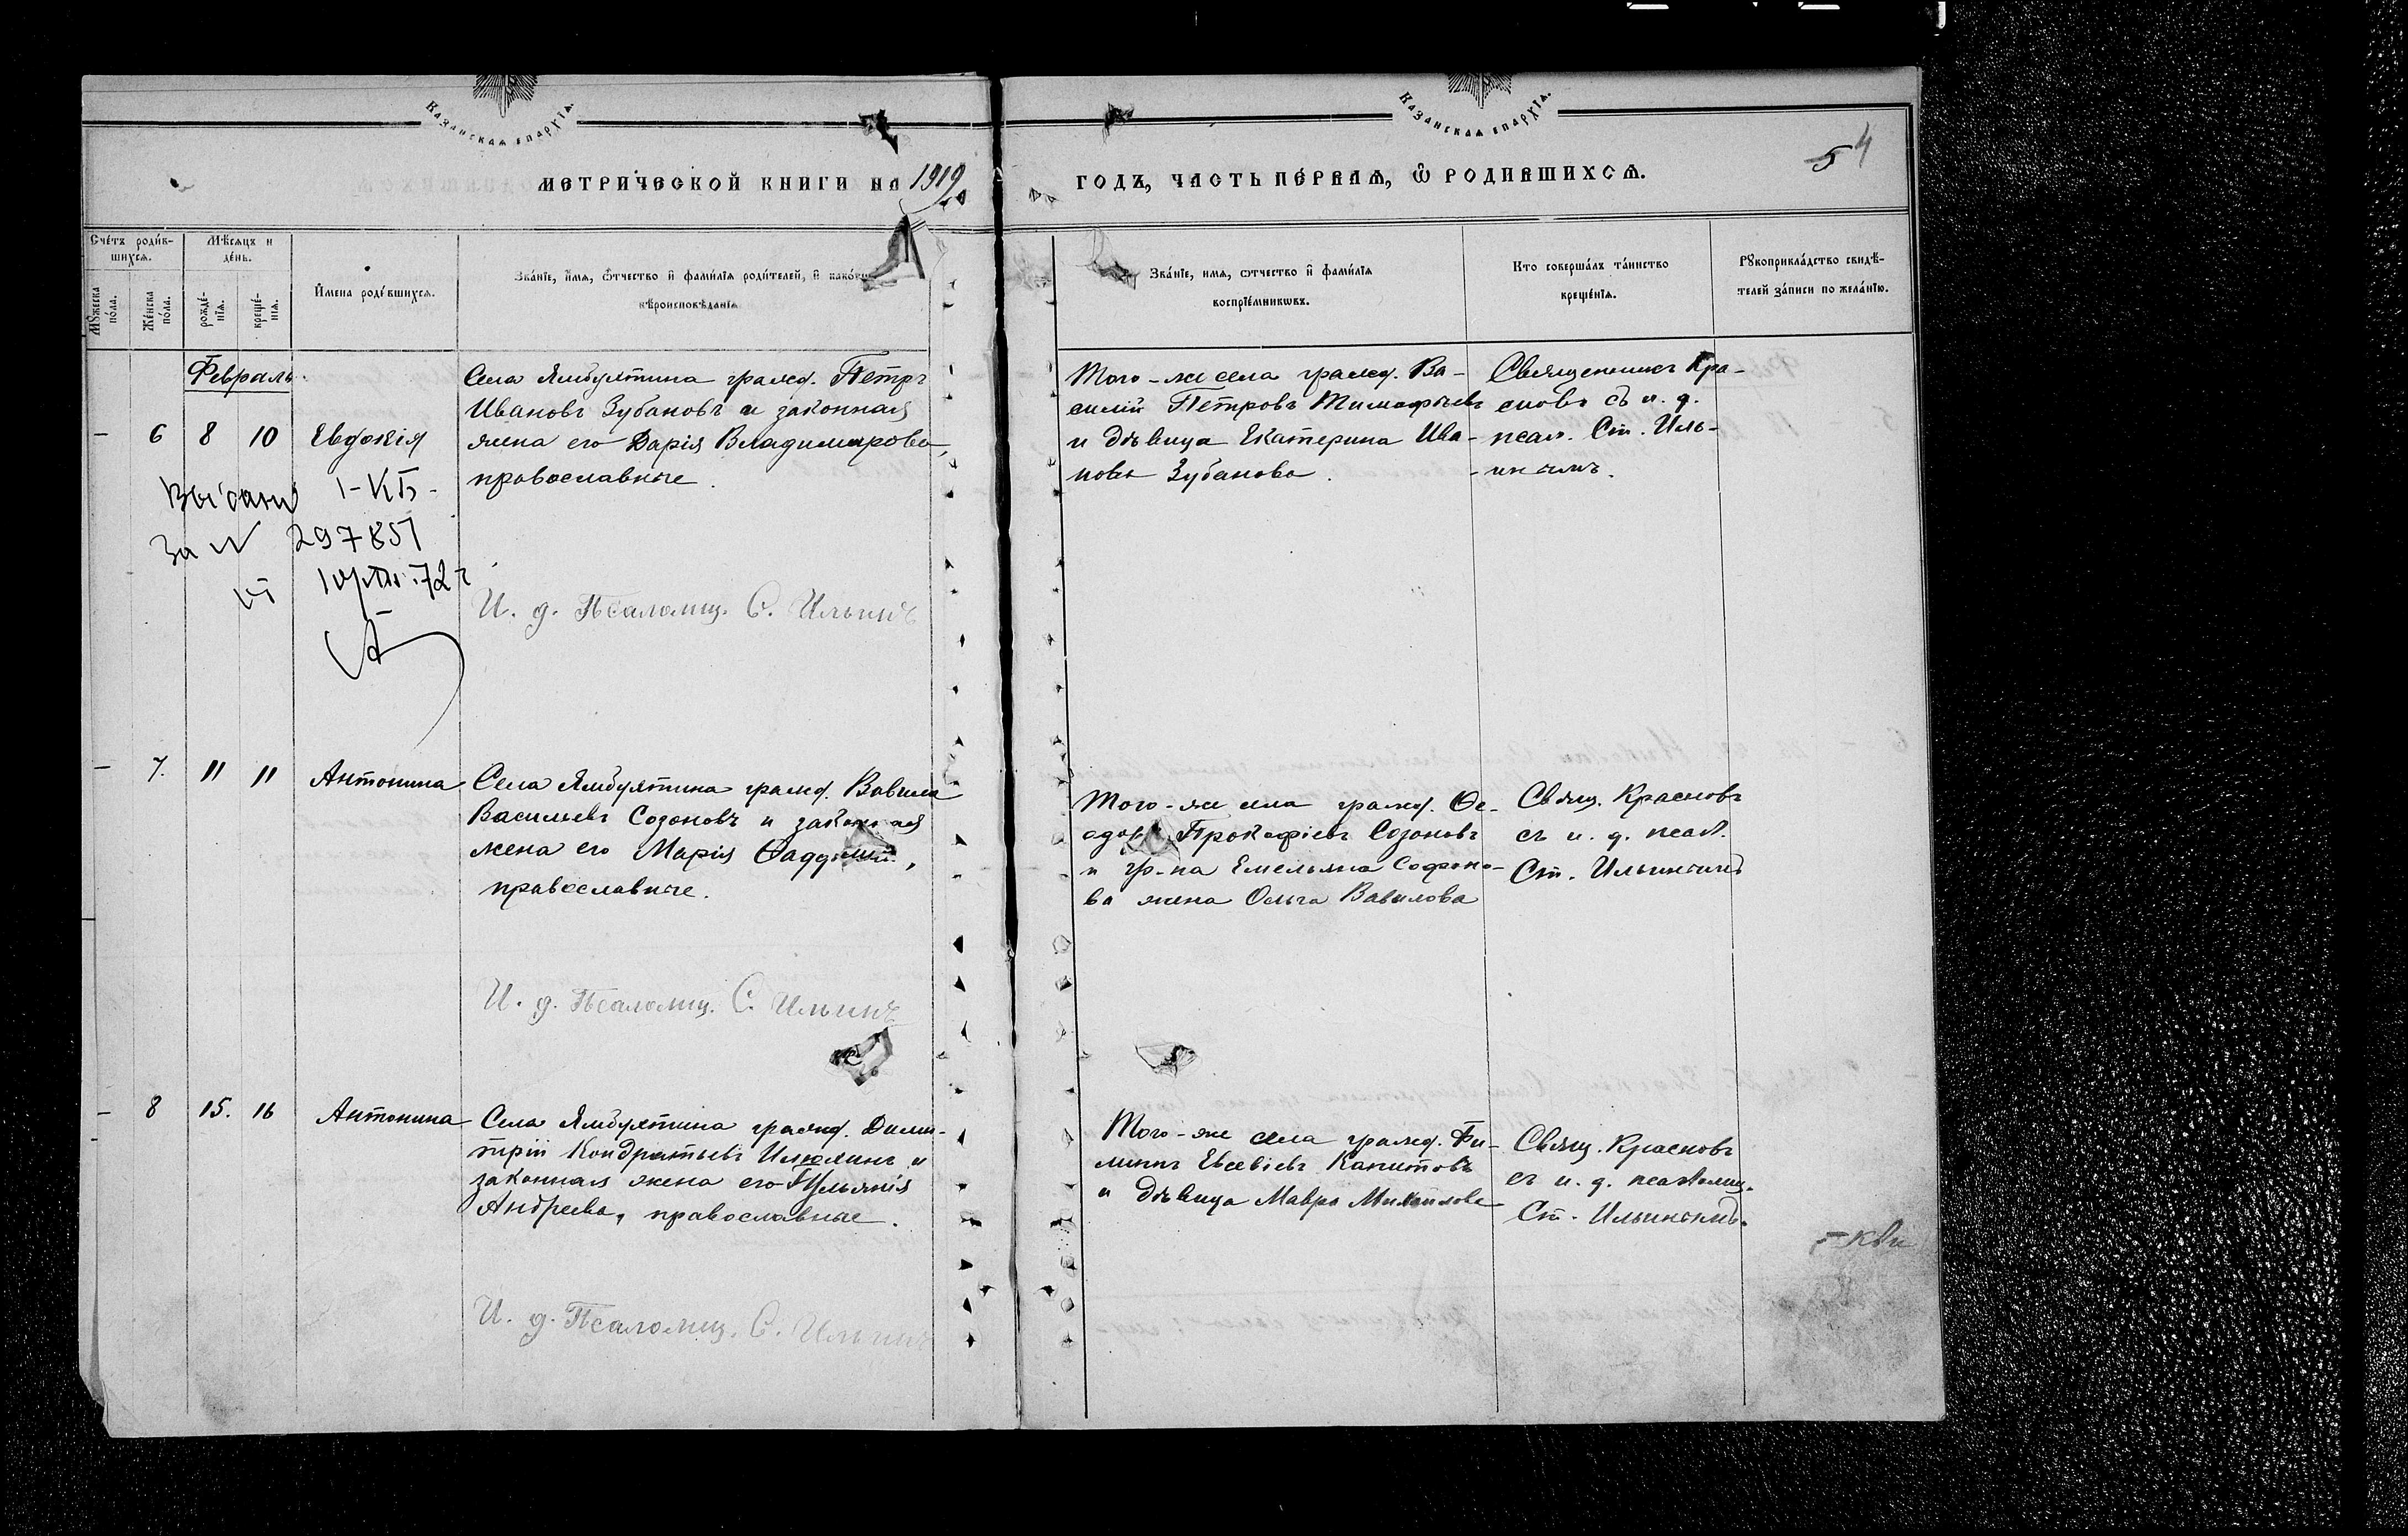 Казанская епархїѧ.
Казанская епархїѧ.
5 4
МЕТРИЧЕСКОЙ КНИГИ НА 1919
ГОДЪ, ЧАСТЬ ПЕ́РВАѦ, Ѽ РОДИВШИХСѦ.
Сче́тъ роди́в-
шихсѧ.
Мѣ́сѧцъ и
де́нь.
Мꙋ́жеска
по́ла.
Же́нска
по́ла.
рожде́-
нїѧ.
креще́-
нїѧ.
И҆мена роди́вшихсѧ.
Зва́нїе, и҆́мѧ, ѻ҆́тчество и҆ фами́лїѧ роди́телей, и҆ како́гѡ
вѣроисповѣ́данїѧ
Зва́нїе, имѧ, ѻтчество и҆ фами́лїѧ
воспрїе́мникѡвъ.
Кто соверша́лъ та́инство
креще́нїѧ.
Рꙋкоприкла́дство свидѣ́-
телей за́писи по жела́нїю.
Февраль.
– 6 8 10 Евдокія
Села Ямбухтина гражд. Петръ
Ивановъ Зубановъ и законная
жена его Дарія Владимирова,
православные.
Того-же села гражд. Ва-
силій Петровъ Тимофѣевъ
и дѣвица Екатерина Ива-
нова Зубанова.
Священникъ Кра-
сновъ съ и. д.
псал. Ст. Иль-
инымъ.
за N 297851
72 г
И. д. Псаломщ. С. Ильинъ
– 7. 11 11 Антонина
Села Ямбухтина гражд. Вавила
Васильевъ Созоновъ и законная
жена его Марія Фаддѣева,
православные.
Того-же села гражд. Ѳе-
одоръ Прокофіевъ Созоновъ
и гр-на Емельяна Софоно-
ва жена Ольга Вавилова
Свящ. Красновъ
съ и. д. псал.
Ст. Ильинымъ
И. д. Псаломщ. С. Ильинъ
– 8 15. 16 Антонина
Села Ямбухтина гражд. Дими-
трій Кондратьевъ Илюхинъ и
законная жена его Іульянія
Андреева, православные.
Того-же села гражд. Фи-
липпъ Евсевіевъ Капитовъ
и дѣвица Мавра Михайлова
Свящ. Красновъ
съ и. д. псаломщ.
Ст. Ильинымъ.
И. д. Псаломщ. С. Ильинъ